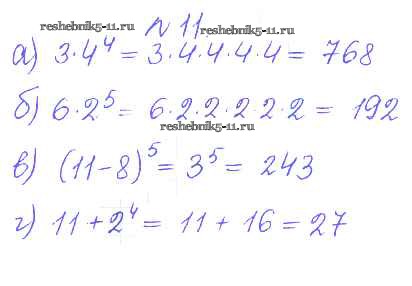 reshebnik5-11.ru
N 11
reshebnik5-11.ru
а) 3·4⁴ = 3·4·4·4·4 = 768
б) 6·2⁵ = 6·2·2·2·2·2 = 192
reshebnik5-11.ru
в) (11-8)⁵ = 3⁵ = 243
г) 11 + 2⁴ = 11 + 16 = 27